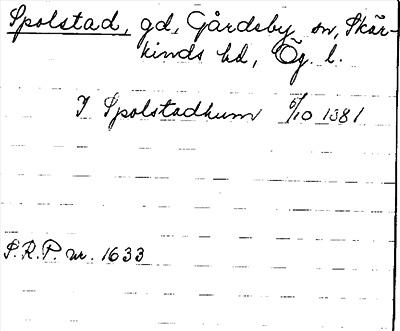 Spolstad, gd, Gårdsby sn, Skär-
kinds hd, Ög. l.
I Spolstadhum 6/10 1381
S.R.P. nr. 1633